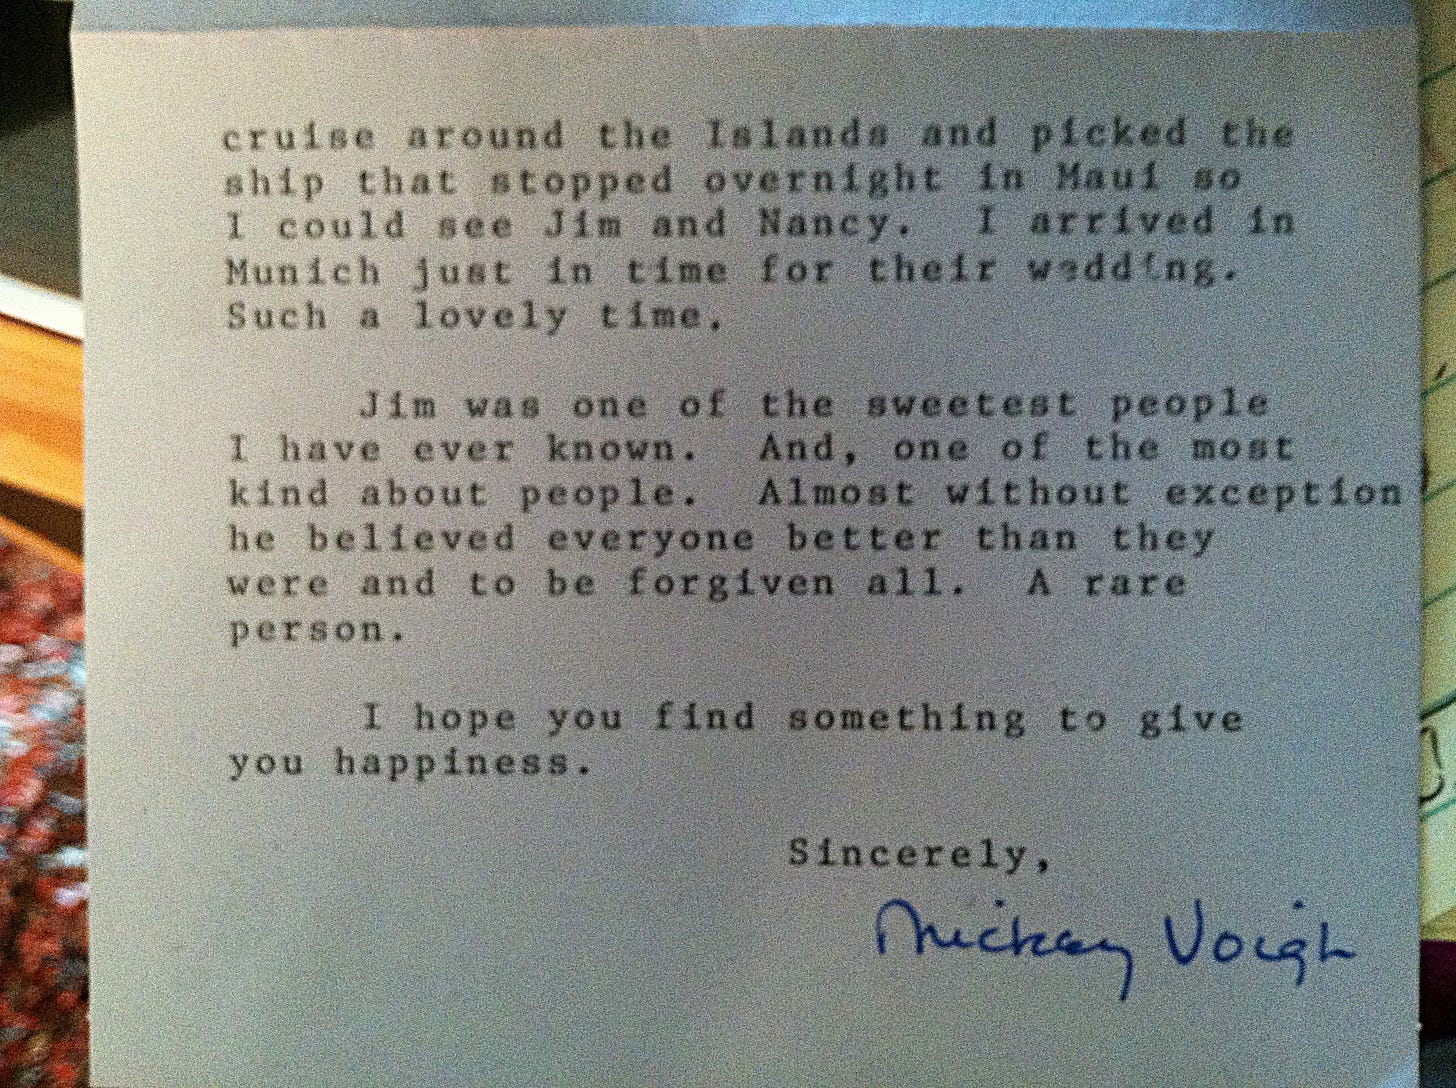 cruise around the Islands and picked the
ship that stopped overnight in Maui so
I could see Jim and Nancy.  I arrived in
Munich just in time for their wedding.
Such a lovely time.
Jim was one of the sweetest people
I have ever known.  And, one of the most
kind about people.  Almost without exception
he believed everyone better than they
were and to be forgiven all.  A rare
person.
I hope you find something to give
you happiness.
Sincerely,
Mickey Voigh